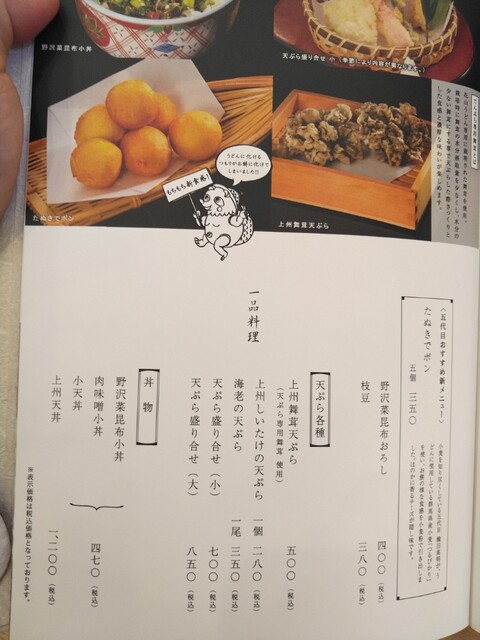 野沢菜昆布小丼
天ぷら盛り合せ 小(季節により内容が異なります。)
うどんに化ける
つもりがお餅に化けて
しまいました!!
もちもち新食感!
たぬきでポン
上州舞茸天ぷら
〈五代目おすすめ新メニュー〉
たぬきでポン
五個 三五〇
野沢菜昆布おろし 四〇〇(税込)
枝豆 三八〇(税込)
一品料理
天ぷら各種
上州舞茸天ぷら 五〇〇(税込)
(天ぷら専用舞茸 使用)
上州しいたけの天ぷら 一個 二八〇(税込)
海老の天ぷら 一尾 三五〇(税込)
天ぷら盛り合せ(小) 七〇〇(税込)
天ぷら盛り合せ(大) 八五〇(税込)
丼物
野沢菜昆布小丼
肉味噌小丼
小天丼
四七〇(税込)
上州天丼 一、二〇〇(税込)
※表示価格は税込価格となっております。